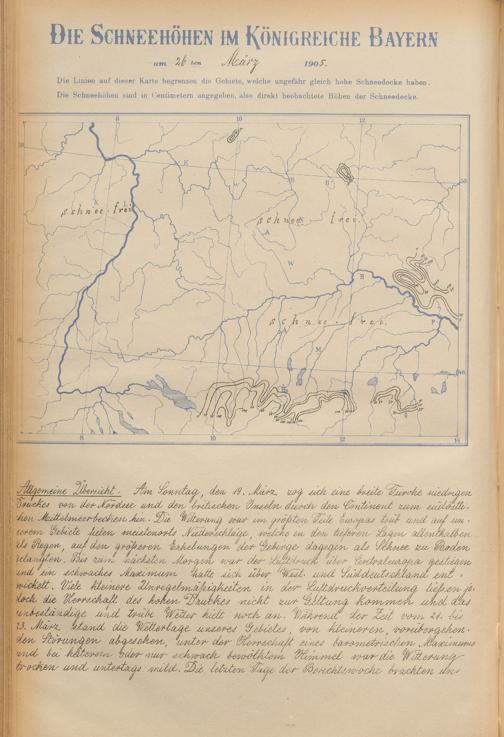 DIE SCHNEEHÖHEN IM KÖNIGREICHE BAYERN
am 26 ten März 1905.
Die Linien auf dieser Karte begrenzen die Gebiete, welche ungefähr gleich hohe Schneedecke haben.
Die Schneehöhen sind in Centimetern angegeben, also direkt beobachtete Höhen der Schneedecke.
8 10 12
schnee-frei
schnee frei.
schnee-frei.
8 10 12 14
Allgemeine Übersicht. Am Sonntag, den 19. März zog sich eine breite Furche niedrigen
Druckes von der Nordsee und den britischen Inseln durch den Continent zum südöstli-
chen Mittelmeerbecken hin. Die Witterung war im größten Teile Europas trüb und auf un-
serem Gebiete fielen meistenorts Niederschläge, welche in den tieferen Lagen allenthalben
als Regen, auf den größeren Erhebungen der Gebirge dagegen als Schnee zu Boden
gelangten. Bis zum nächsten Morgen war der Luftdruck über Centraleuropa gestiegen
und ein schwaches Maximum hatte sich über West- und Süddeutschland ent-
wickelt. Viele kleinere Unregelmäßigkeiten in der Luftdruckverteilung ließen je-
doch die Herrschaft des hohen Druckes nicht zur Geltung kommen und das
unbeständige und trübe Wetter hielt noch an. Während der Zeit vom 21. bis
23. März stand die Wetterlage unseres Gebietes, von kleineren, vorübergehen-
den Störungen abgesehen, unter der Herrschaft eines barometrischen Maximums
und bei heiterem oder nur schwach bewölktem Himmel war die Witterung
trocken und untertags mild. Die letzten Tage der Berichtswoche brachten un-